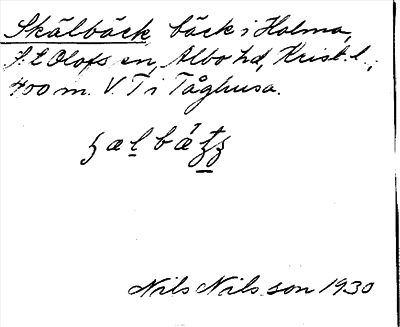 Skälbäck bäck i Holma,
S:t Olofs sn, Albo hd, Krist. l.,
400 m. V. T i Tåghusa.
Nils Nilsson 1930